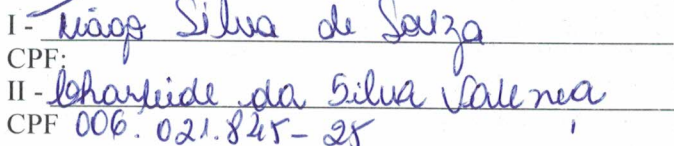 I - Tiago Silva de Souza
CPF:
II - Charleide da Silva Valença
CPF 006.021.845-25